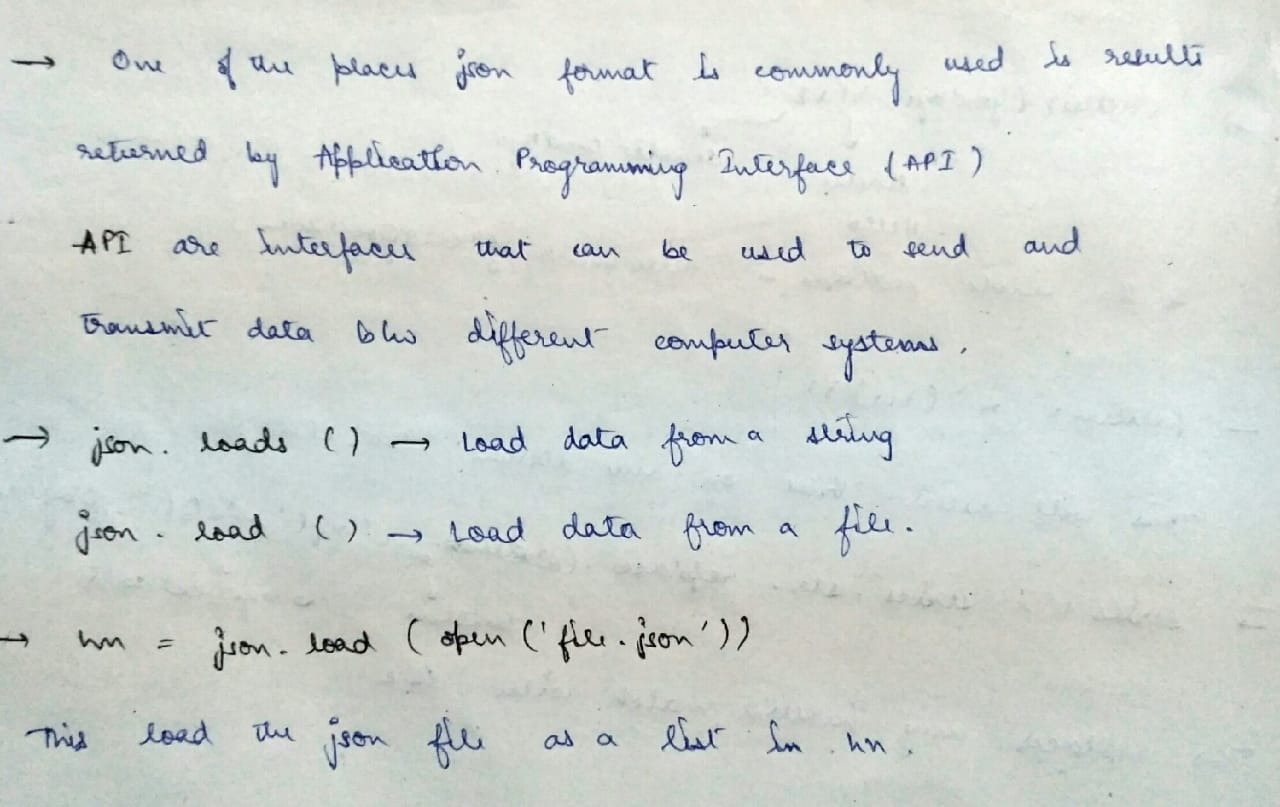 → One of the places json format is commonly used is results
returned by Application Programming Interface (API)
API are interfaces that can be used to send and
transmit data b/w different computer systems.
→ json.loads () → Load data from a string
json.load () → Load data from a file.
→ hn = json.load (open ('file.json'))
This load the json file as a list in hn.